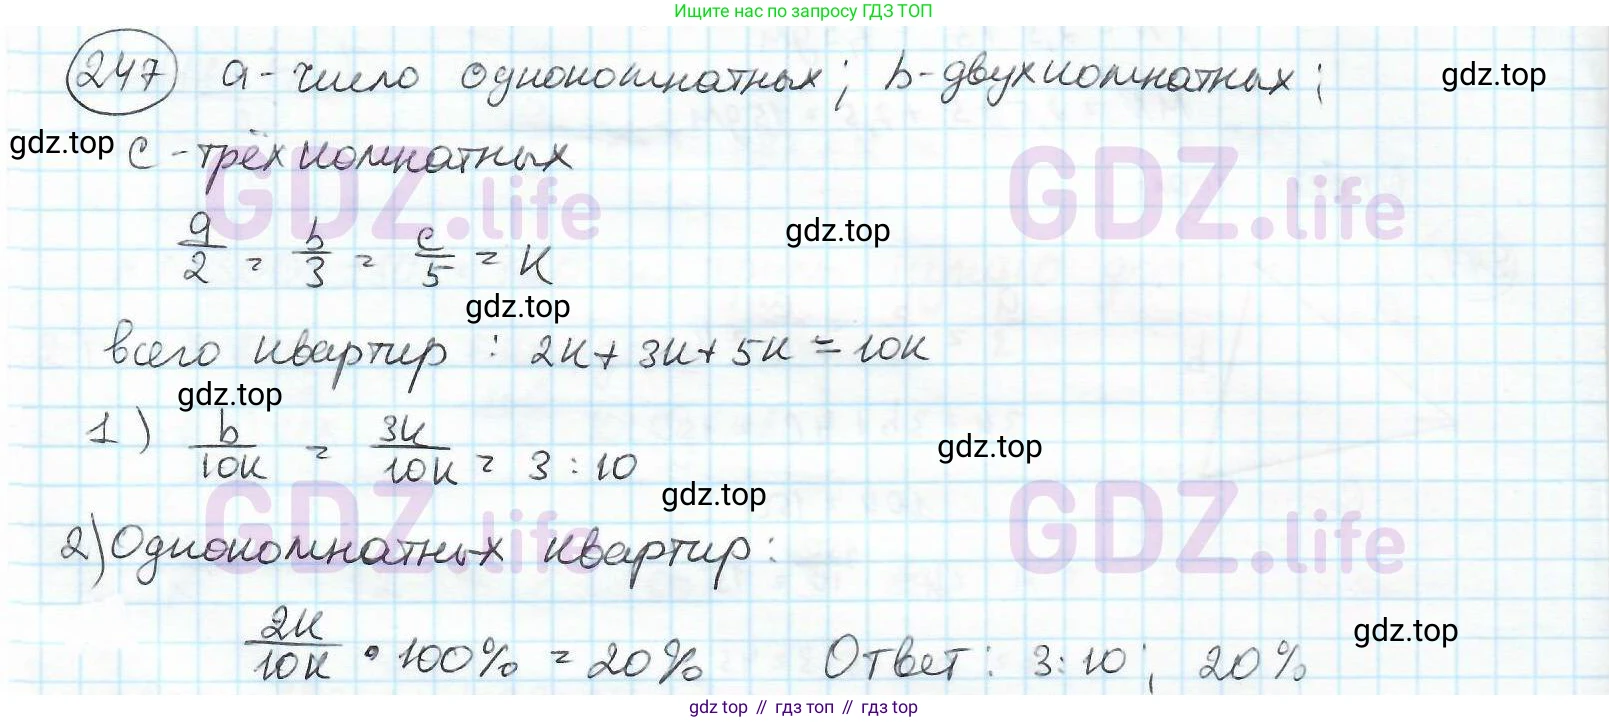 Ищите нас по запросу ГДЗ ТОП
247 a - число однокомнатных; b - двухкомнатных;
gdz.top
gdz.top
c - трёхкомнатных
GDZ.life
GDZ.life
a/2 = b/3 = c/5 = K
gdz.top
gdz.top
всего квартир : 2K + 3K + 5K = 10K
gdz.top
1) b/10K = 3K/10K = 3 : 10
gdz.top
gdz.top
GDZ.life
GDZ.life
2) Однокомнатных квартир:
2K/10K • 100% = 20% Ответ: 3:10; 20%
gdz.top
gdz top // гдз топ // гдз top